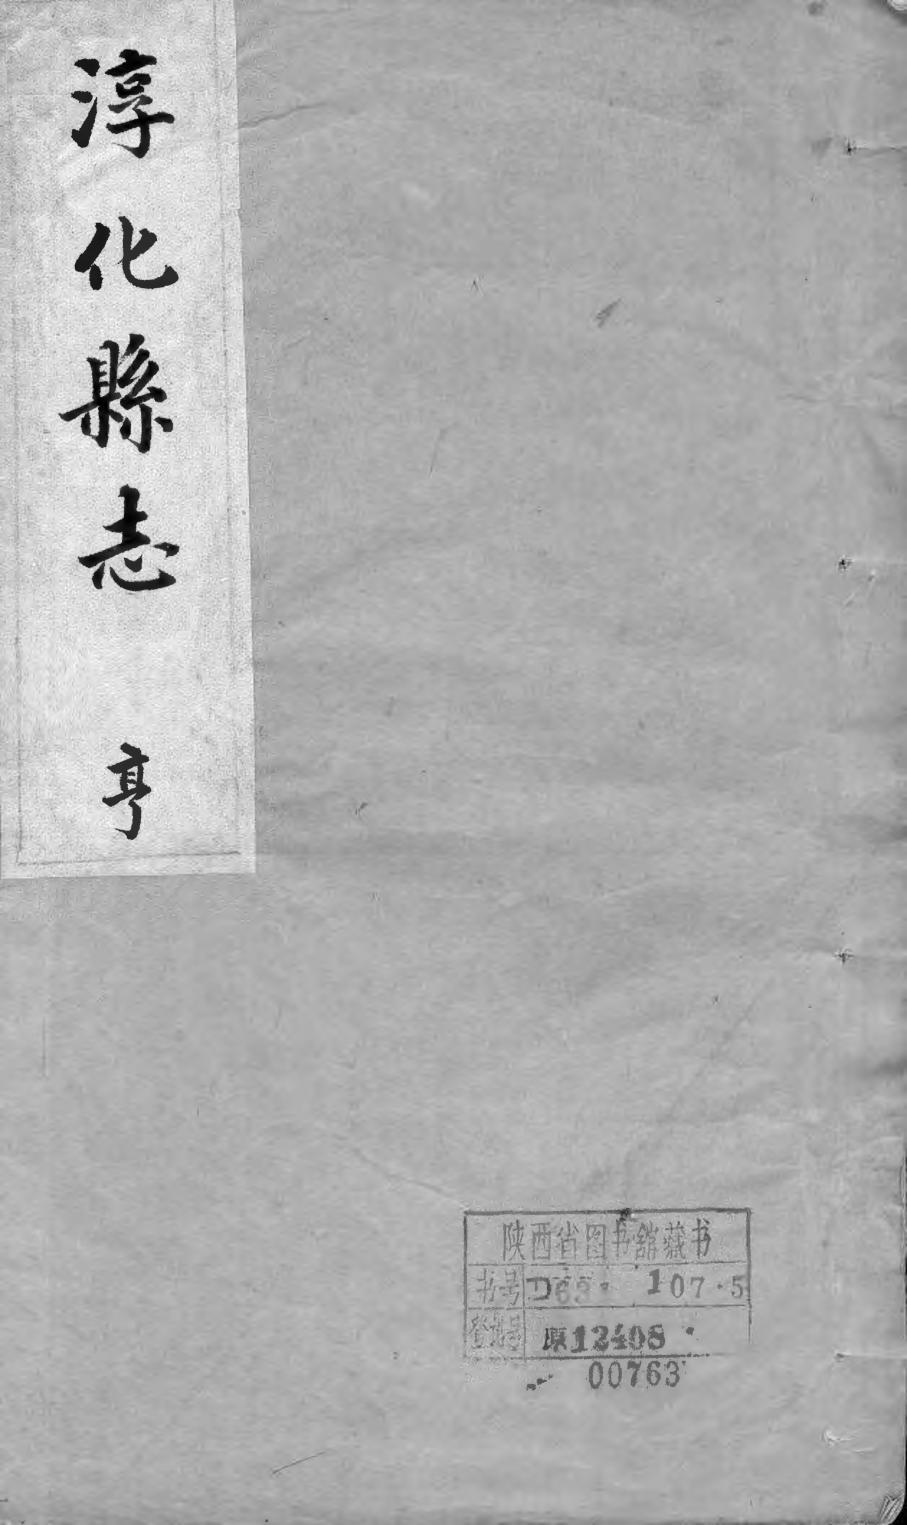 淳化縣志 亨
陕西省图书馆藏书
书号 D63· 107·5
登记号 原12408
00763